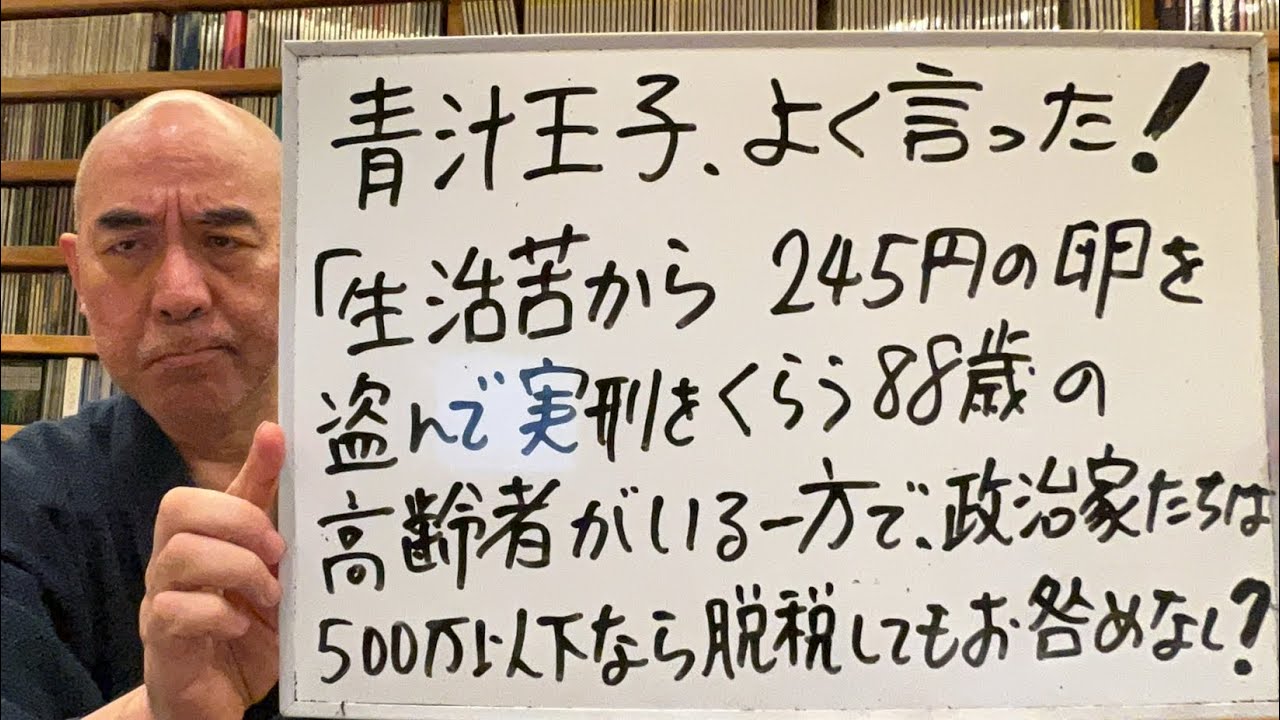 青汁王子、よく言った!
「生活苦から 245円の卵を
盗んで実刑をくらう88歳の
高齢者がいる一方で、政治家たちは
500万以下なら脱税してもお咎めなし?